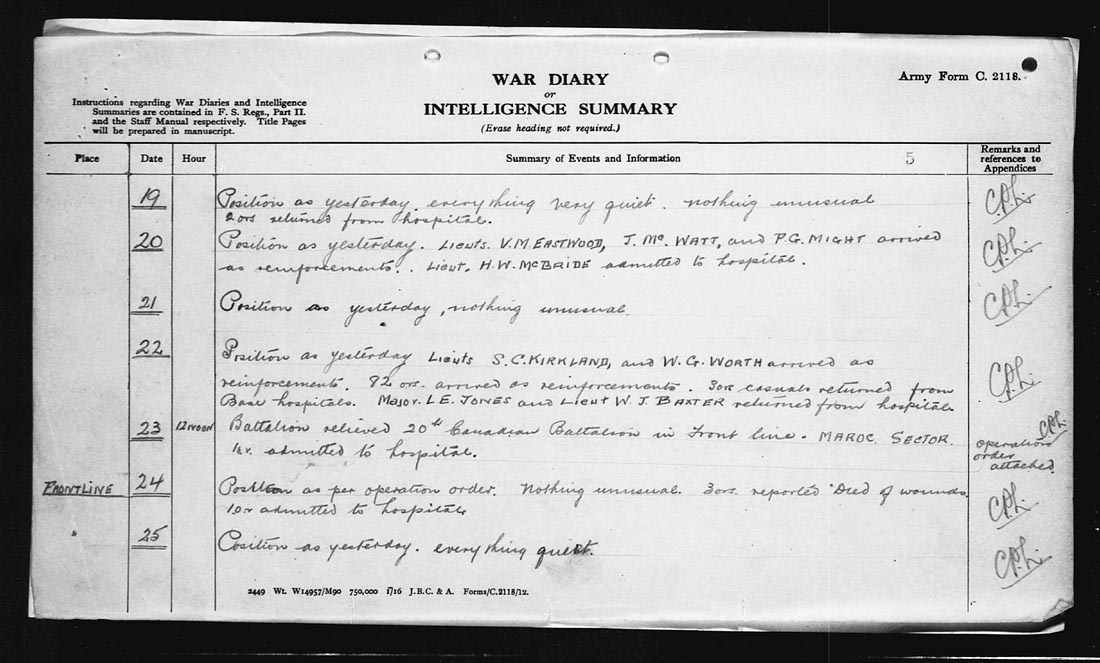 WAR DIARY
or
INTELLIGENCE SUMMARY
(Erase heading not required.)
Army Form C. 2118.
Instructions regarding War Diaries and Intelligence
Summaries are contained in F. S. Regs., Part II.
and the Staff Manual respectively. Title Pages
will be prepared in manuscript.
Place Date Hour Summary of Events and Information 5 Remarks and
references to
Appendices
19 Position as yesterday. everything very quiet. nothing unusual
2 ors returned from hospital.
20 Position as yesterday. Lieuts. V.M. EASTWOOD, J. Mc. WATT, and P.G. MIGHT arrived
as reinforcements.. Lieut. H.W. McBRIDE admitted to hospital.
21 Position as yesterday, nothing unusual.
22 Position as yesterday Lieuts S.C. KIRKLAND, and W.G. WORTH arrived as
reinforcements. 82 ors. arrived as reinforcements. 3 ors casuals returned from
Base hospitals. Major. L.E. JONES and Lieut W.J. BAXTER returned from hospital.
23 12 NOON Battalion relieved 20th Canadian Battalion in Front line. MAROC SECTOR.
1 or. admitted to hospital.
operation
order
attached.
FRONTLINE 24 Position as per operation order. Nothing unusual. 3 ors. reported "Died of wounds
1 or admitted to hospital
" 25 Position as yesterday. everything quiet.
2449 Wt. W14957/M90 750,000 1/16 J.B.C. & A. Forms/C.2118/12.